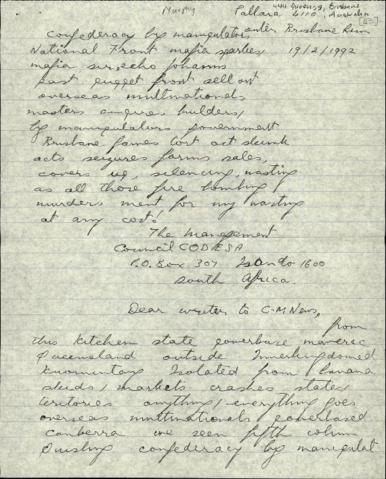 Pallara 4110, Australia
Confederacy by manipulators outer Brisbane Rim
National Front mafia parties 19/2/1992
mafia
last front sell out
overseas multinationals
masters empires builders,
by manipulators government
Brisbane James Cort act skunk
acts seizures farms sales,
covers up, silencing, wasting
as all those fire bombing /
murders ment for my wasting
at any cost!
The Management
Council CODESA
P.O. Box 307 Isando 1600
South Africa.
Dear writer to C-M News,
from
this kitchen state powerbase maveric
Queensland outside
Isolated from / banana
skids / markets crashes states /
territories anything / everything goes
overseas multinationals powerbased
Canberra we seen fifth column
Quisling confederacy by manipulat